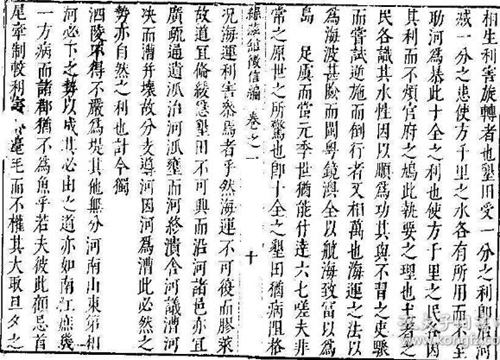 相生利害旋轉者也墾田受一分之利即治河
減一分之患使方千里之水各有所用而不
助河為暴此十全之利也使方千里之民各因
其利而不煩官府之鳩此執要之理也土著之
民各識其水性因以順為功其與不習之吏驟
而嘗試逆施而倒行者又相萬也海運之法以
為海波甚險而閩粵鏡澳全以航海致富以為
島 足虞而當元季世猶能什達六七嗟夫非
常之原世之所驚也即十全之墾田猶病阻格
綠滋館徵信編 卷之一 十
況海運利害叅焉者乎然海運不可復而膠萊
故道宜倫緩急墾田不可興而沿河諸邑亦宜
廣疏通過派治河派壅而河終潰舍河議漕河
決而漕并壞故分支導河因河為漕此必然之
勢亦自然之利也計今獨
泗陵不得不嚴為堤其他無分河南山東弟相
河必下之勢以成其必由之道亦如南江燕薊
一方病而諸郡猶不為魚乎若夫彼此顧忌首
尾牽制較利害 毫毛而不權其大取旦夕之